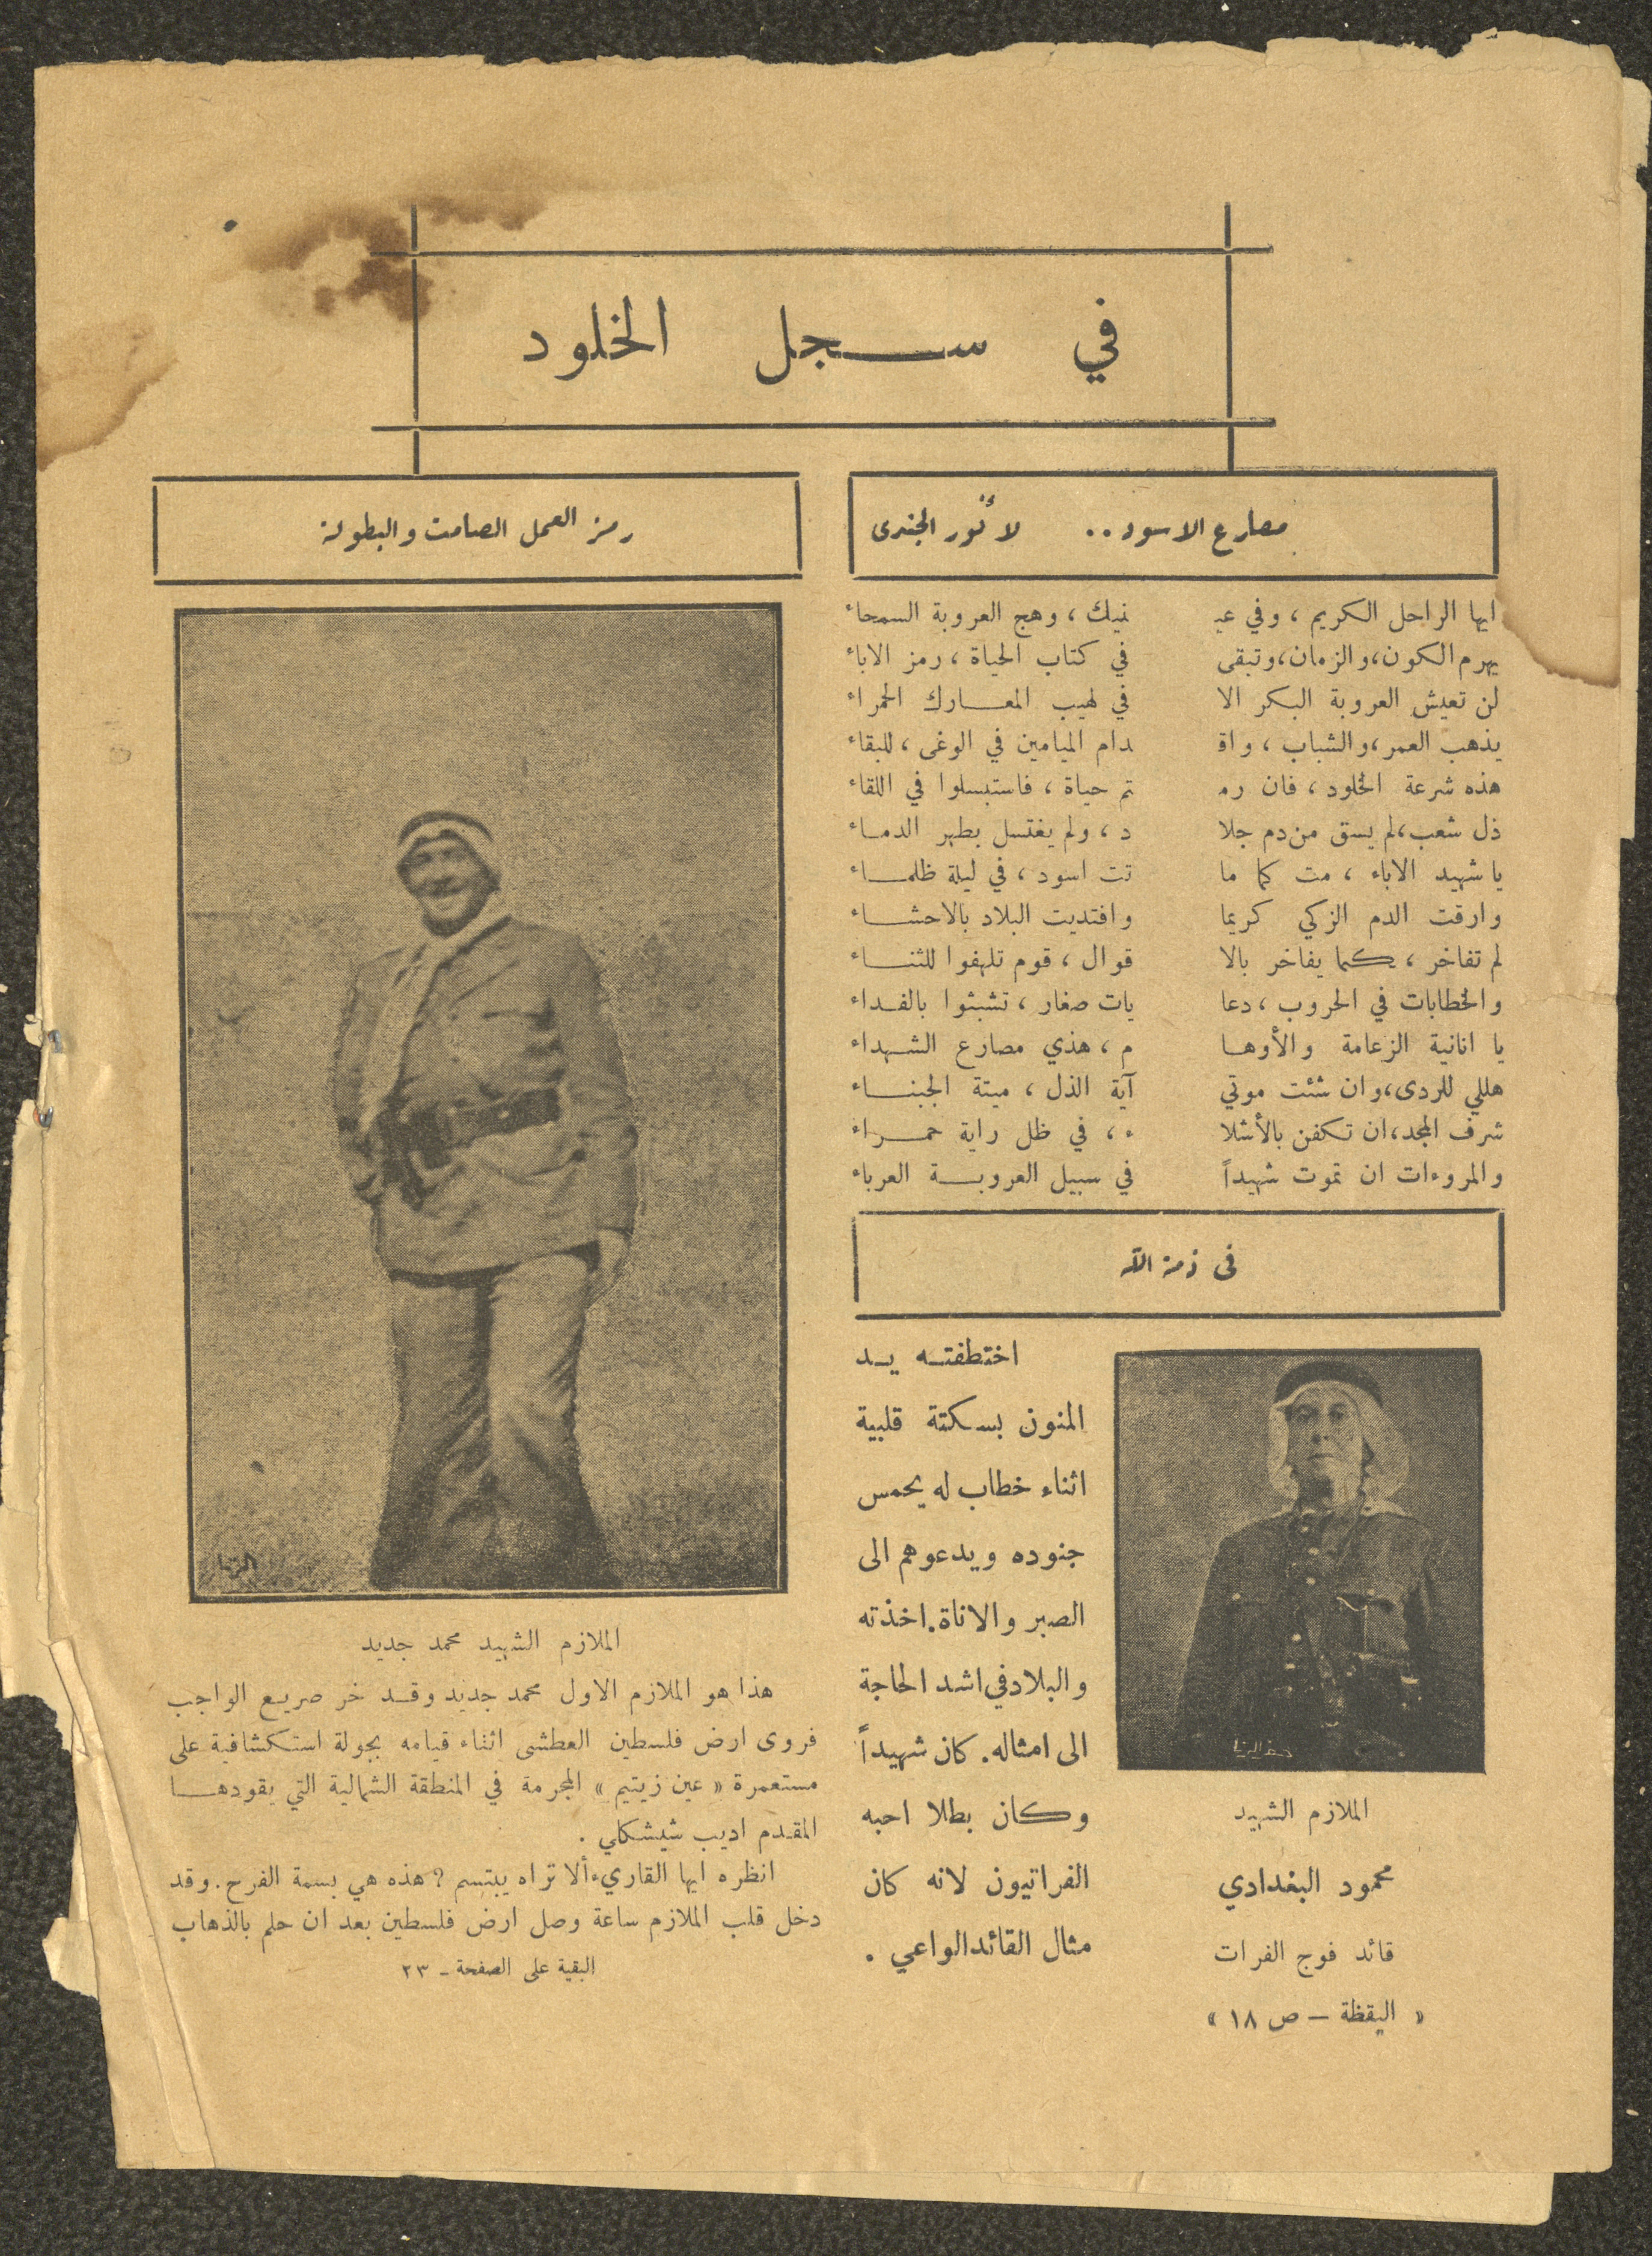 في سجل الخلود
مصارع الاسود .. لأنور الجندى
ايها الراحل الكريم ، وفي عيـ نيك ، وهج العروبة السمحاء
يهرم الكون، والزمان، وتبقى في كتاب الحياة ، رمز الاباء
لن تعيش العروبة البكر الا في لهيب المعارك الحمراء
يذهب العمر، والشباب ، واقـ دام الميامين في الوغى ، للبقاء
هذه شرعة الخلود ، فان رمـ تم حياة ، فاستبسلوا في اللقاء
ذل شعب، لم يسق من دم جلا د ، ولم يغتسل بطهر الدماء
يا شهيد الاباء ، مت كما ما تت اسود ، في ليلة ظلماء
وارقت الدم الزكي كريما وافتديت البلاد بالاحشاء
لم تفاخر ، كما يفاخر بالا قوال ، قوم تلهفوا للثناء
والخطابات في الحروب ، دعا يات صغار ، تشبثوا بالفداء
يا انانية الزعامة والأوها م ، هذي مصارع الشهداء
هللي للردى، وان شئت موتي آية الذل ، ميتة الجبناء
شرف المجد، ان تكفن بالأشلا ء ، في ظل راية حمراء
والمروءات ان تموت شهيداً في سبيل العروبة العرباء
فى ذمة الله
اختطفته يد
المنون بسكتة قلبية
اثناء خطاب له يحمس
جنوده ويدعوهم الى
الصبر والاناة. اخذته
والبلاد في اشد الحاجة
الى امثاله. كان شهيداً
وكان بطلا احبه
الفراتيون لانه كان
مثال القائد الواعي .
الملازم الشهيد
محمود البغدادي
قائد فوج الفرات
« اليقظة – ص ١٨ »
رمز العمل الصامت والبطولة
الملازم الشهيد محمد جديد
هذا هو الملازم الاول محمد جديد وقد خر صريع الواجب
فروى ارض فلسطين العطشى اثناء قيامه بجولة استكشافية على
مستعمرة « عين زيتيم » المجرمة في المنطقة الشمالية التي يقودها
المقدم اديب شيشكلي .
انظره ايها القاريء ألا تراه يبتسم ? هذه هي بسمة الفرح. وقد
دخل قلب الملازم ساعة وصل ارض فلسطين بعد ان حلم بالذهاب
البقية على الصفحة - ٢٣